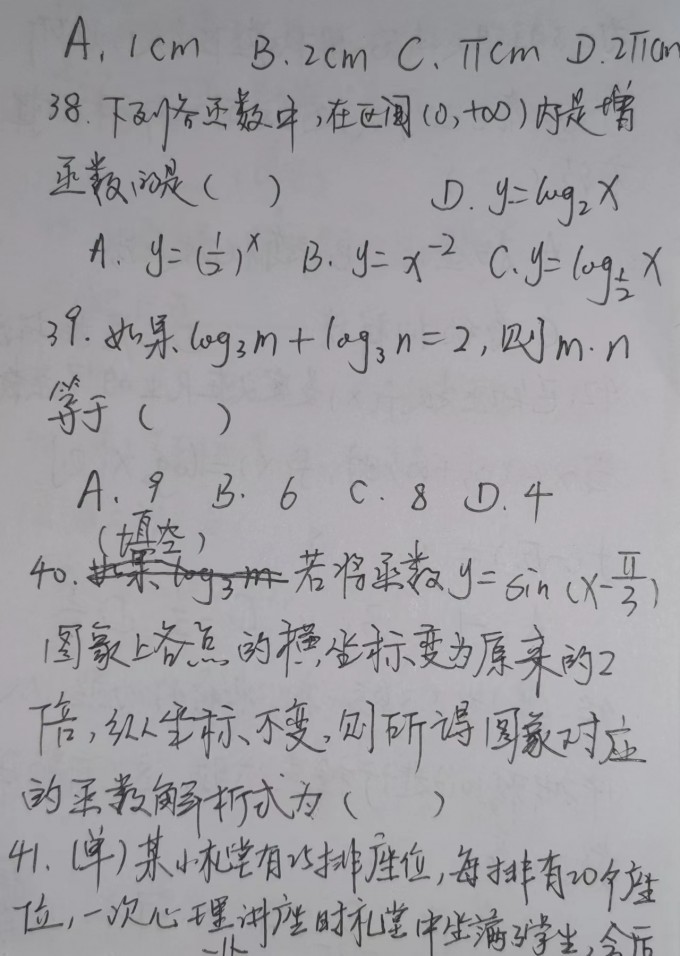 A. 1cm B. 2cm C. πcm D. 2πcm
38. 下列各函数中,在区间(0,+∞)内是增
函数的是( ) D. y=log₂x
A. y=(1/2)^x B. y=x^-2 C. y=log_{1/2} x
39. 如果log₃m+log₃n=2,则m·n
等于( )
A. 9 B. 6 C. 8 D. 4
(填空)
40. 如果log₃m 若将函数y=sin(x-π/3)
图象上各点的横坐标变为原来的2
倍,纵坐标不变,则所得图象对应
的函数解析式为( )
41. (单)某小礼堂有25排座位,每排有20个座
位,一次心理讲座时礼堂中坐满了学生,会后